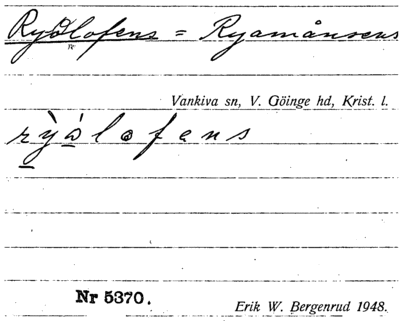 Ryalofens = Ryamånsens
Vankiva sn, V. Göinge hd, Krist. l.
rỳàlofens
Nr 5370.
Erik W. Bergenrud 1948.